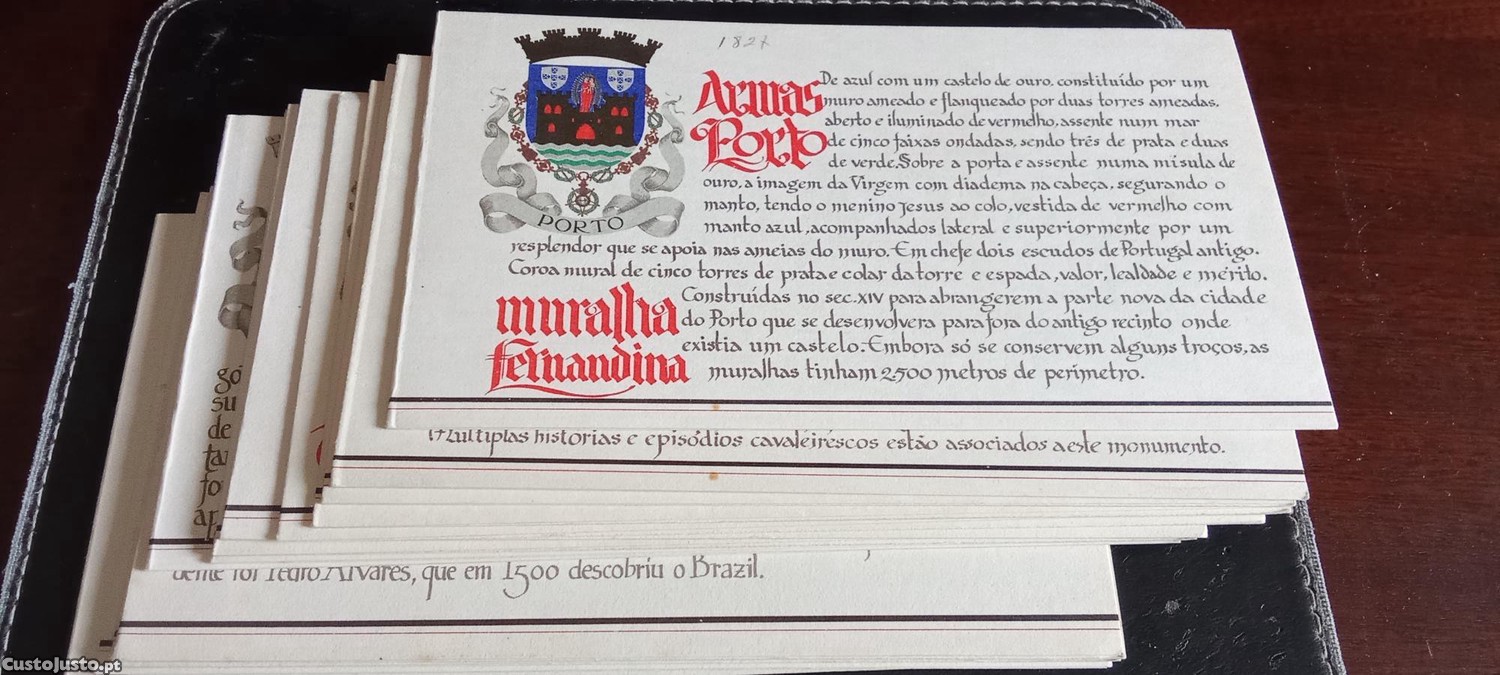 1827
PORTO
Armas
Porto
De azul com um castelo de ouro, constituído por um
muro ameado e flanqueado por duas torres ameadas,
aberto e iluminado de vermelho, assente num mar
de cinco faixas ondadas, sendo três de prata e duas
de verde. Sobre a porta e assente numa mísula de
ouro, a imagem da Virgem com diadema na cabeça, segurando o
manto, tendo o menino Jesus ao colo, vestida de vermelho com
manto azul, acompanhados lateral e superiormente por um
resplendor que se apoia nas ameias do muro. Em chefe dois escudos de Portugal antigo.
Coroa mural de cinco torres de prata e colar da torre e espada, valor, lealdade e mérito.
muralha
fernandina
Construídas no sec. XIV para abrangerem a parte nova da cidade
do Porto que se desenvolvera para fora do antigo recinto onde
existia um castelo. Embora só se conservem alguns troços, as
muralhas tinham 2.500 metros de perímetro.
Múltiplas histórias e episódios cavaleirescos estão associados a este monumento.
gó
su
de
ta
fo
ár
dente foi Pedro Álvares, que em 1500 descobriu o Brazil.
CustoJusto.pt